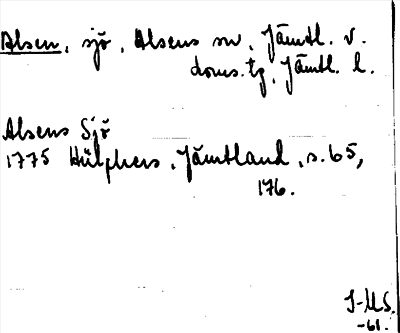 Alsen, sjö, Alsens sn, Jämtl. v.
doms.tg, Jämtl. l.
Alsens Sjö
1775 Hülphers, Jämtland, s. 65,
176.
J-M S.
-61.